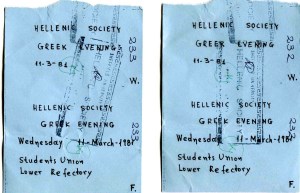 HELLENIC SOCIETY
GREEK EVENING
11-3-81
233
W.
HELLENIC SOCIETY
GREEK EVENING
Wednesday 11-March-1981
233
Students Union
Lower Refectory
F.
HELLENIC SOCIETY
GREEK EVENING
11-3-81
232
W.
HELLENIC SOCIETY
GREEK EVENING
Wednesday 11-March-1981
232
Students Union
Lower Refectory
F.